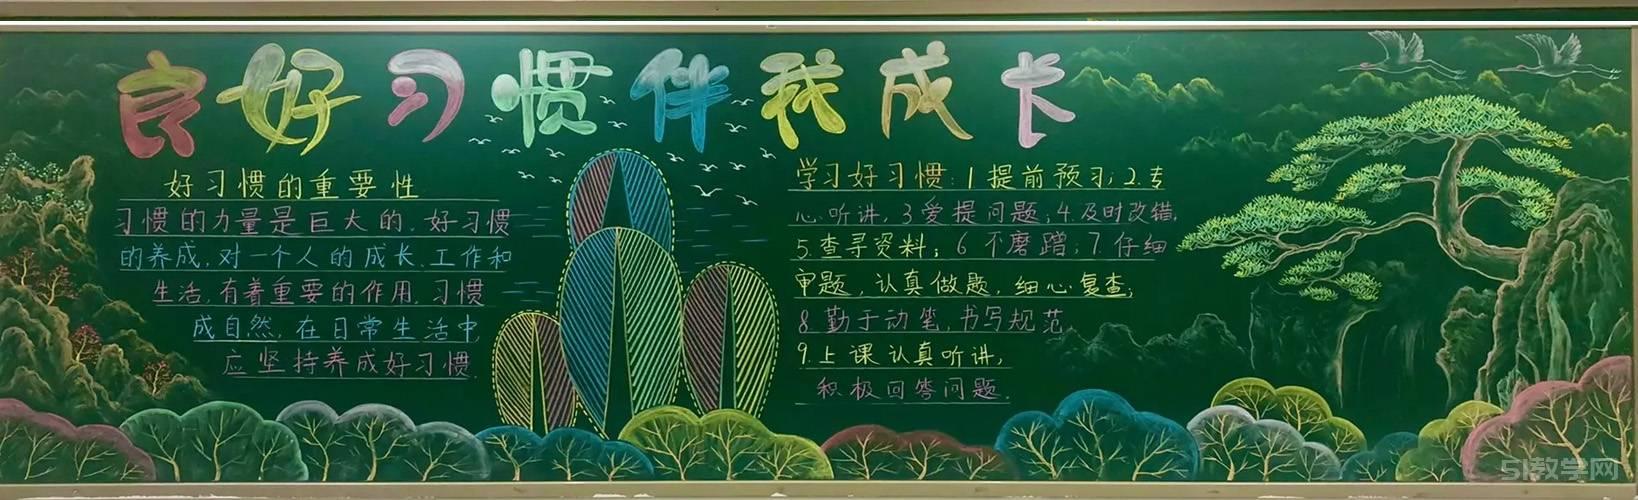 良好习惯伴我成长
好习惯的重要性
习惯的力量是巨大的.好习惯
的养成,对一个人的成长.工作和
生活,有着重要的作用.习惯
成自然,在日常生活中,
应坚持养成好习惯.
学习好习惯:1提前预习;2.专
心听讲,3爱提问题;4.及时改错,
5.查寻资料;6不磨蹭;7.仔细
审题,认真做题,细心复查;
8.勤于动笔,书写规范,
9.上课认真听讲,
积极回答问题.
51教学网